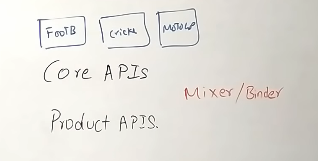 FootB Cricke MotoGP
Core APIs
Mixer/Binder
Product APIS.